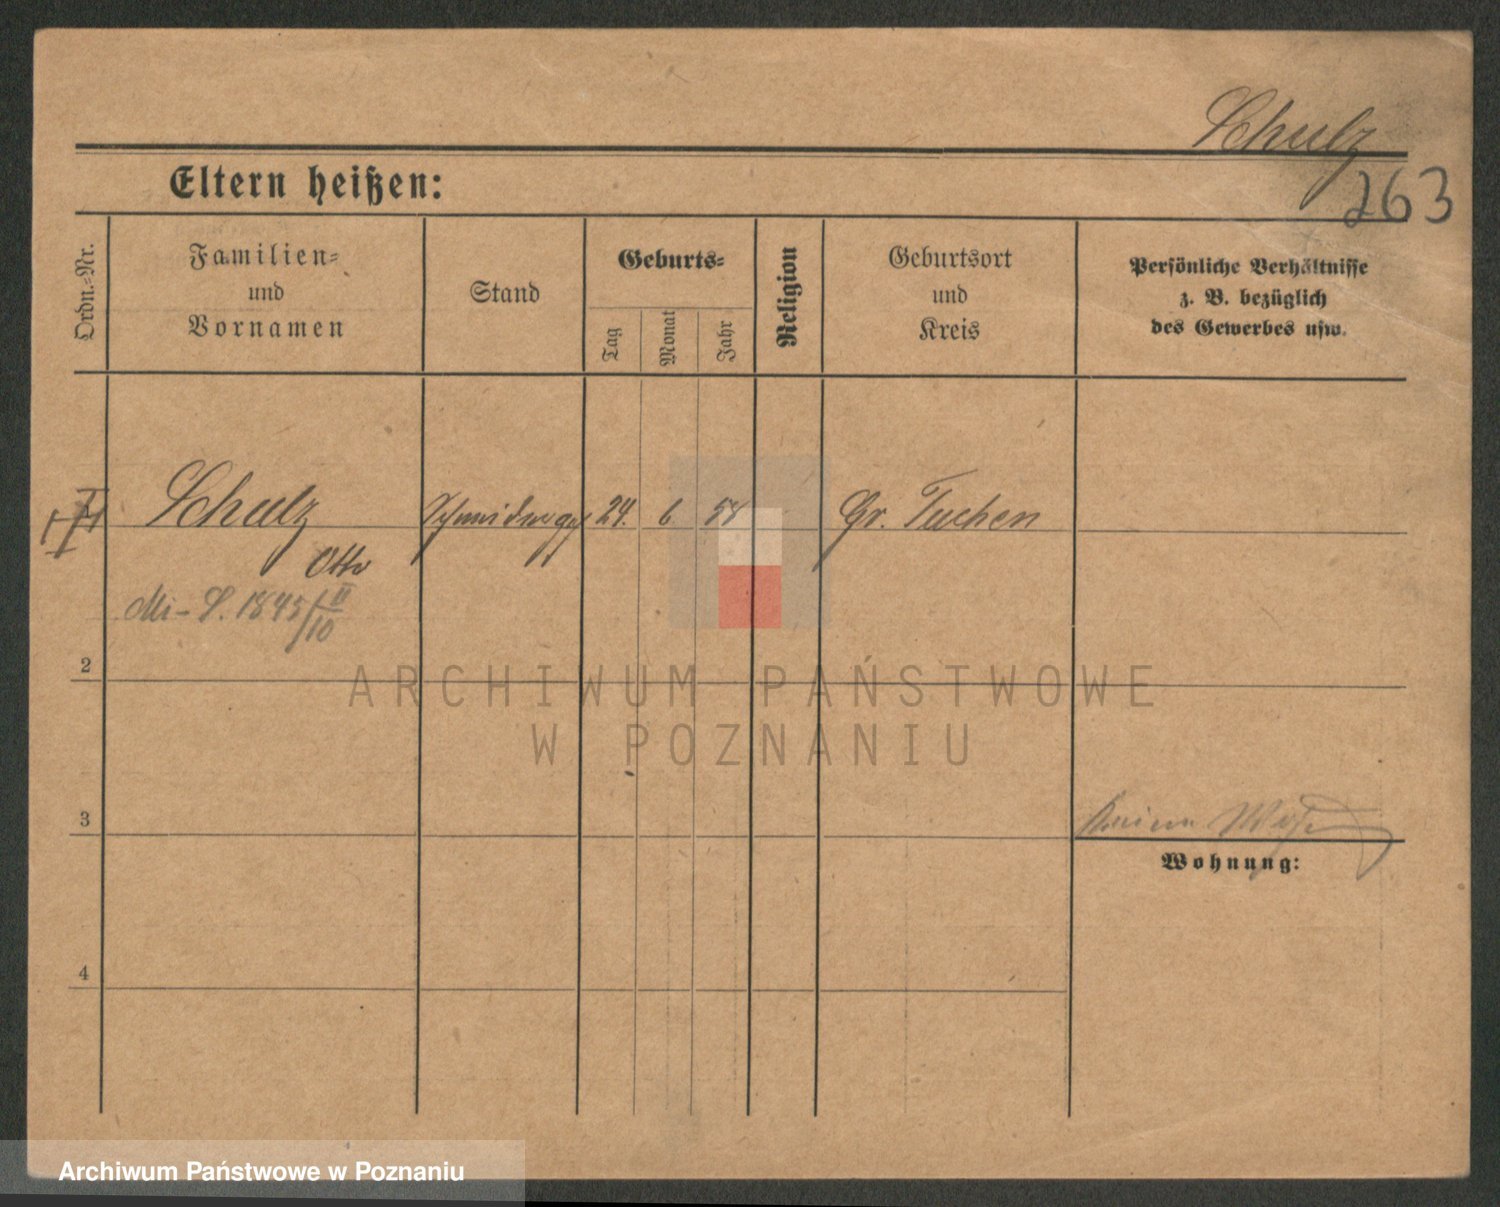 Schulz
263
Eltern heißen:
Ordn.-Nr.
Familien-
und
Vornamen
Stand
Geburts-
Tag
Monat
Jahr
Religion
Geburtsort
und
Kreis
Persönliche Verhältnisse
z. B. bezüglich
des Gewerbes usw.
Schulz
24. 6. 58
Gr. Tuchen
Otto
1845
II
10
2
ARCHIWUM PAŃSTWOWE
W POZNANIU
3
Wohnung:
4
Archiwum Państwowe w Poznaniu